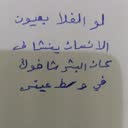 لو الغلا بعيون
الانسان ينشاف
كان البشر شافوك
في وسط عيني